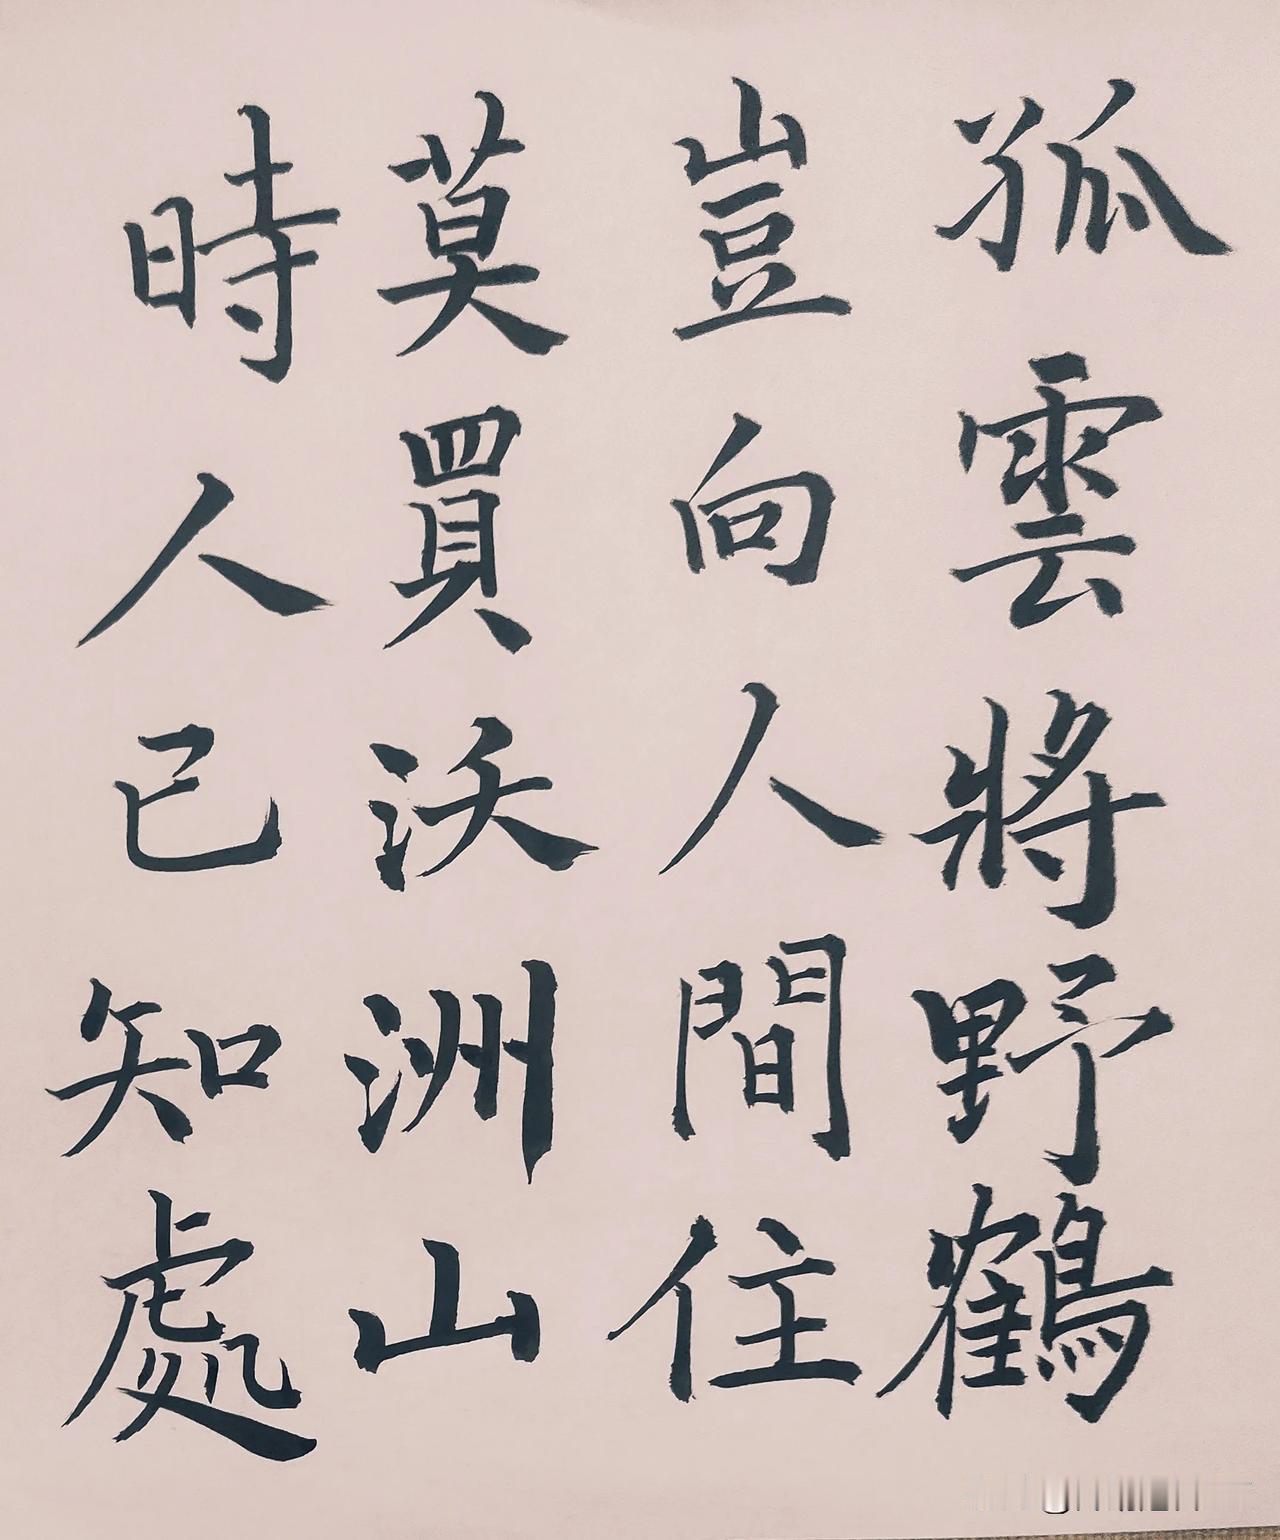 孤雲將野鶴
豈向人間住
莫買沃洲山
時人已知處